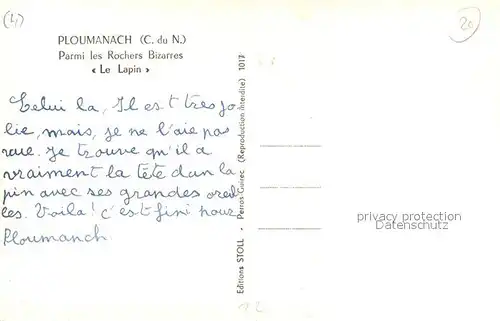 (4)
20
PLOUMANACH (C. du N.)
Parmi les Rochers Bizarres
« Le Lapin »
Celui la, Il est tres jo
lie, mais, je ne l'aie pas
vue. Je trouve qu'il a
vraiment la tête d'un la
pin avec ses grandes oreil
les. Voila! c'est fini pour
Ploumanch.
Editions STOLL - Perros-Guirec (Reproduction interdite) 1017
privacy protection
Datenschutz